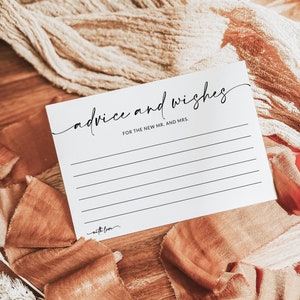 advice and wishes
FOR THE NEW MR. AND MRS.
with love